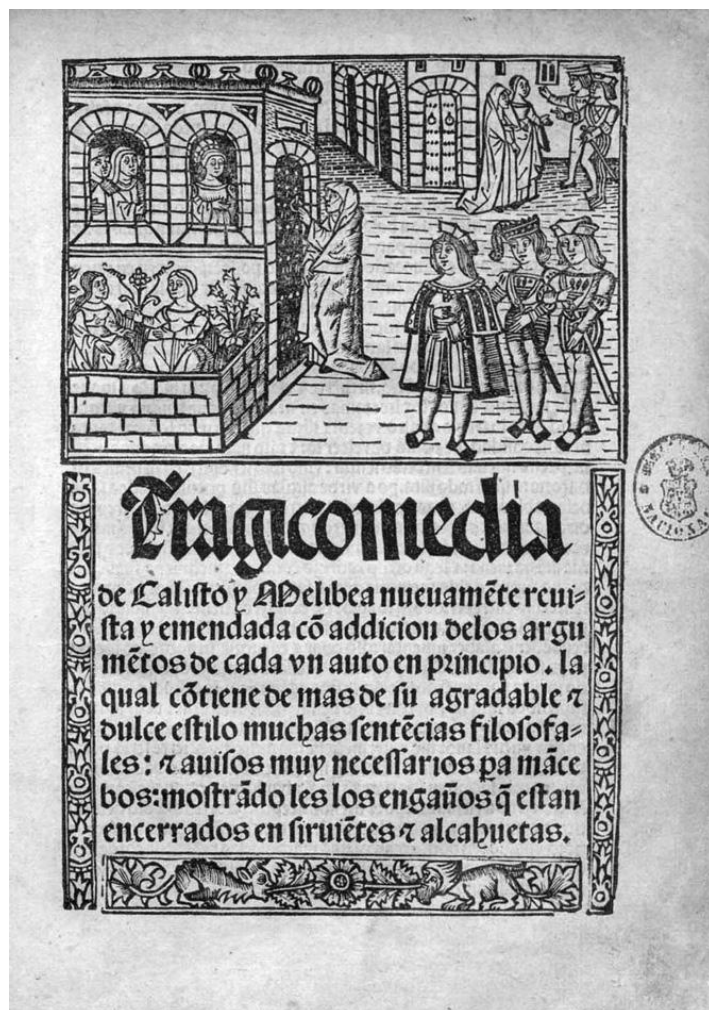 Tragicomedia
de Calisto y Melibea nueuamẽte reui-
sta y emendada cõ addicion delos argu
mẽtos de cada vn auto en principio. la
qual cõtiene de mas de su agradable ⁊
dulce estilo muchas sentẽcias filosofa-
les: ⁊ auisos muy necessarios ꝑa mãce
bos: mostrãdo les los engaños q̃ estan
encerrados en siruiẽtes ⁊ alcahuetas.
NACIONAL